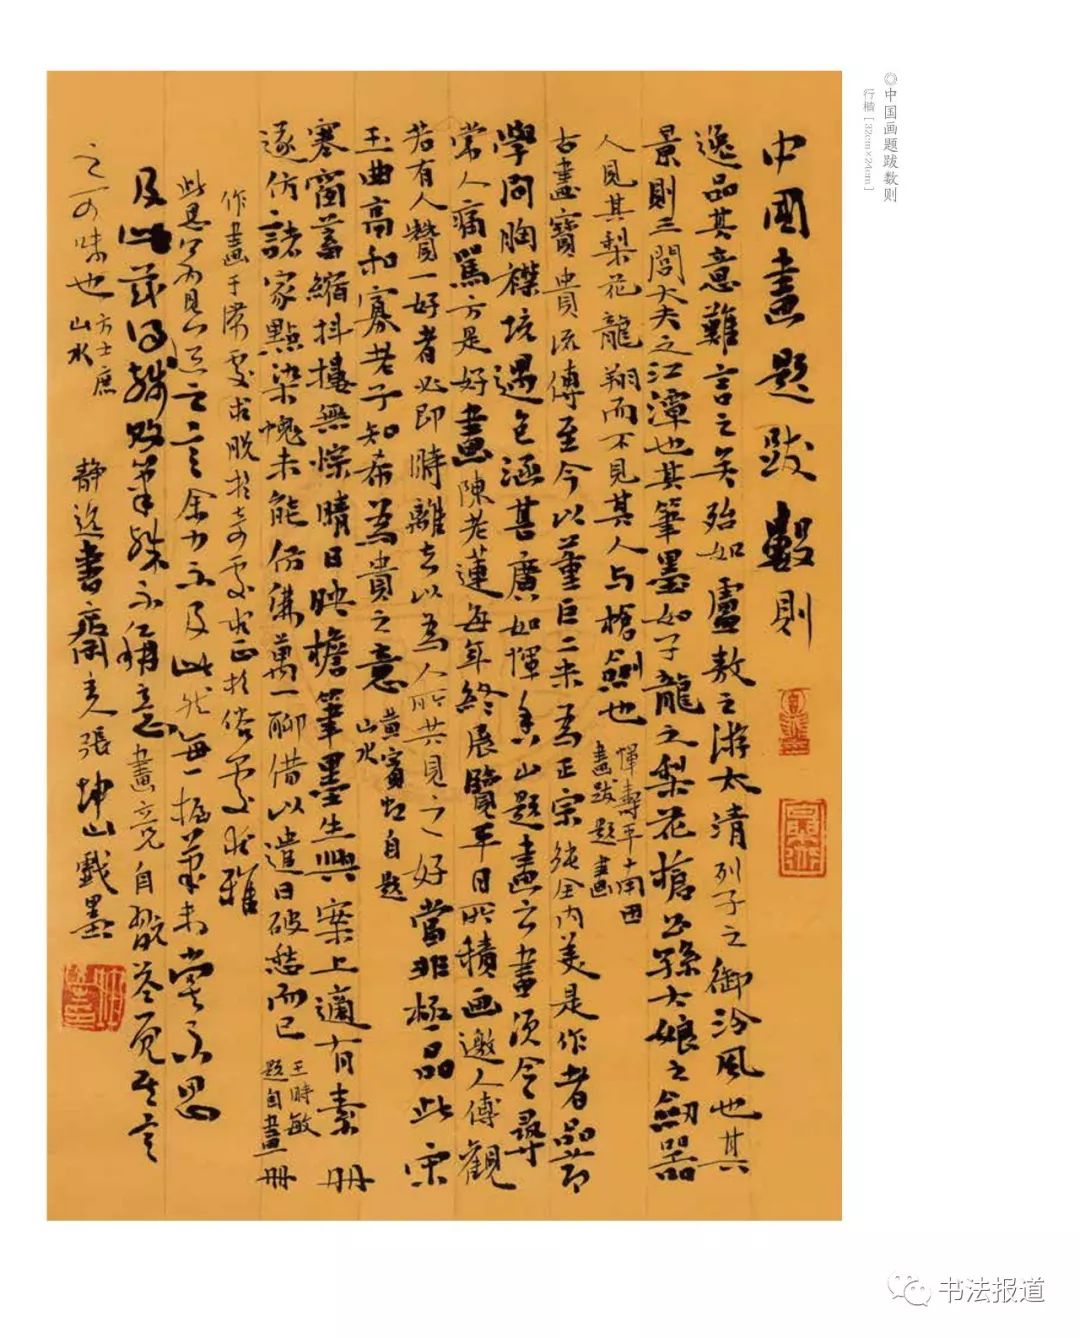 ◎中国画题跋数则
行楷［32cm×24cm］
中國畫題跋數則
逸品其意難言之矣殆如盧敖之游太清列子之御泠風也其
景則三閭大夫之江潭也其筆墨如子龍之梨花槍公孫大娘之劍器
人見其梨花龍翔而不見其人与槍劍也 惲壽平
畫跋題畫
古畫寶貴流傳至今以董巨二米為正宗純全内美是作者品節
學問胸襟境遇包涵甚廣如惲香山題畫云畫須令尋
常人痛罵方是好畫陳老蓮每年終展覽平日所積画邀人傳觀
若有人贊一好者必即時離去以為人所共見之好當非極品此宋
玉曲高和寡老子知希為貴之意 黃賓虹自題
山水
寒窗蓄縮抖擻無悰晴日映檐筆墨生興案上適有素冊
遂仿諸家點染愧未能仿彿萬一聊借以遣日破愁而已 王時敏
題自畫冊
作畫于深處求脱於奇處求正於俗處求雅
此是余力不及此然每一握筆未嘗不思
及此
畫竟自
之可味也 方士庶
山水
靜逸書齋主張坤山戲墨
书法报道